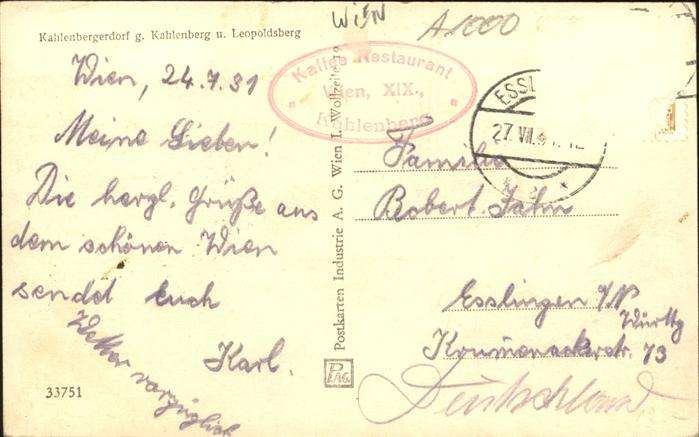 WIEN
A 1000
Kahlenbergerdorf g. Kahlenberg u. Leopoldsberg
Wien, 24.7.31
Meine Lieben!
Die herzl. Grüße aus
dem schönen Wien
sendet Euch
Karl.
Wetter vorzüglich
33751
Postkarten Industrie A. G. Wien I. Wollzeile 9
PIAG.
Restaurant
Wien, XIX.,
Kahlenberg
ESSL
27. VII.
Familie
Robert Jahn
Esslingen a/N
Württg
73
Deutschland